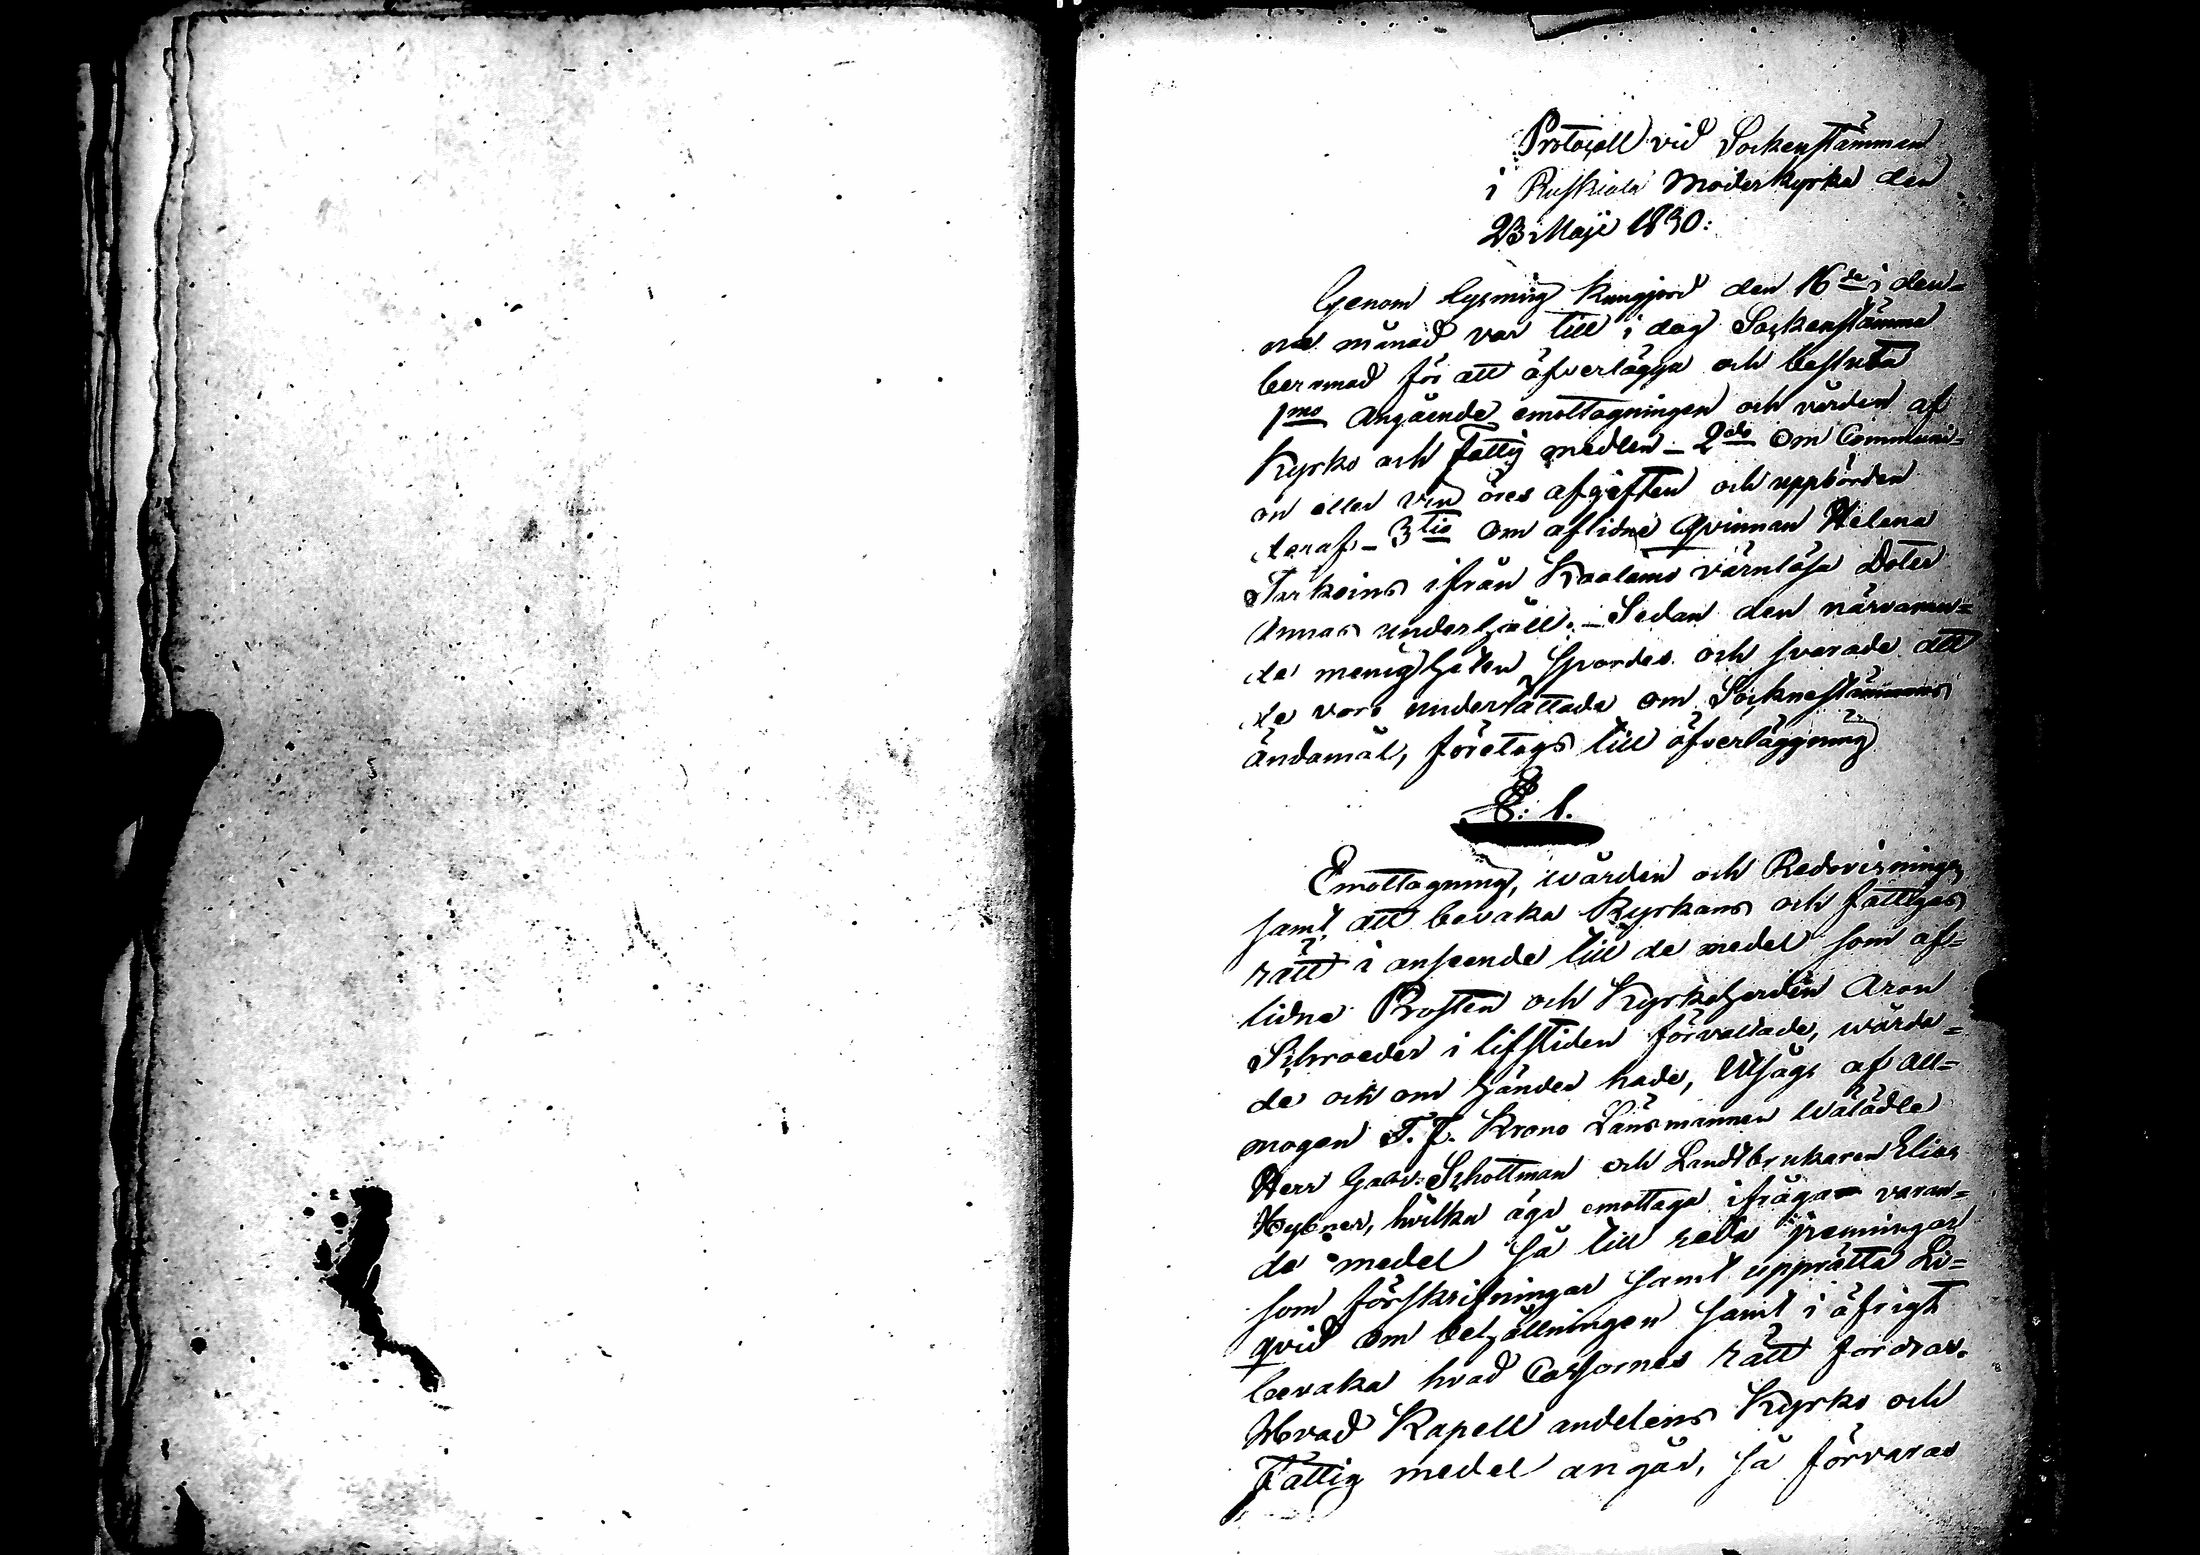 Protocoll vid Sockenstämman
i Ruskiala Moderkyrka den
23 Maji 1830:
Genom lysning kungjord den 16de i den-
na månad var till i dag Sockenstämma
beramad för att öfverlägga och besluta
1mo Angående emottagningen och vården af
Kyrko och Fattig medlen – 2do Om Communi-
on eller vin öres afgiften och uppbörden
deraf – 3tio Om aflidne Qvinnan Helena
Karkoins ifrån Kaalamo värnlösa Doter
Annas underhåll. – Sedan den närvaran-
de menigheten spordes och svarade att
de voro underrättade om Socknestämmans
ändamål, företogs till öfverläggning
§: 1.
Emottagning, vården och Redovisningen
samt att bevaka Kyrkans och fattigas
rätt i anseende till de medel som af-
lidne Prosten och Kyrkoherden Aron
Schroeder i lifstiden förvaltade, vårda-
de och om händer hade, Utsågs af All-
mogen T. f. Krono Länsmannen Välädle
Herr Gabr. Schottman och Landtbrukaren Elias
Hybner, hvilka äga emottaga ifråga varan-
de medel så till reda penningar
som förskrifningar samt upprätta Li-
qvid om behållningen samt i öfrigt
bevaka hvad Cassornas rätt fordrar.
Hvad Kapell andelens Kyrko och
Fattig medel angår, så förvaras